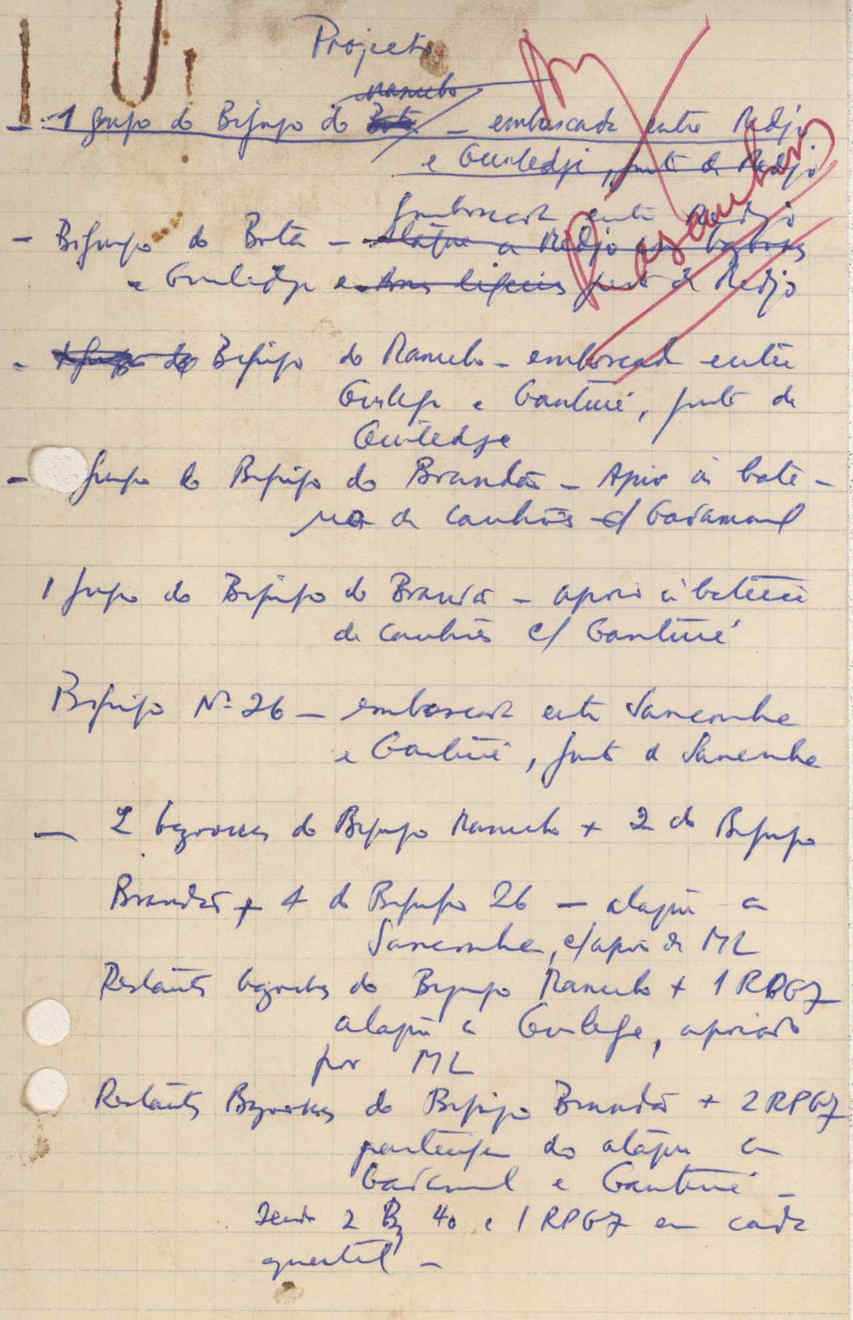 Projecto
Manecho
- 1 grupo do Bigrupo do Bota - emboscada entre Kedjo
e Guiledje, junto de Kedjo
Emboscada entre Kedjo
- Bigrupo do Bota - Ataque a Kedjo
e Guiledge junto de Kedjo
- Bigrupo do Manecho - emboscada entre
Guilege e Ganturé, junto de
Guiledge
- grupo do Bigrupo do Brandão - Apoio à bate-
ria de canhões c/ Gadamael
1 grupo do Bigrupo do Brandão - apoio à bateria
de canhões c/ Ganturé
Bigrupo Nº 26 - emboscada entre Sanconha
e Ganturé, junto de Sanconha
- 2 bazookas do Bigrupo Manecho + 2 do Bigrupo
Brandão + 4 do Bigrupo 26 - ataque a
Sanconha, c/ apoio de ML
Restantes bazookas do Bigrupo Manecho + 1 RPG7
ataque a Guilege, apoiado
por ML
Restantes Bazookas do Bigrupo Brandão + 2 RPG7
participam do ataque a
Gadamael e Ganturé -
sendo 2 Bz 40 e 1 RPG7 em cada
quartel -